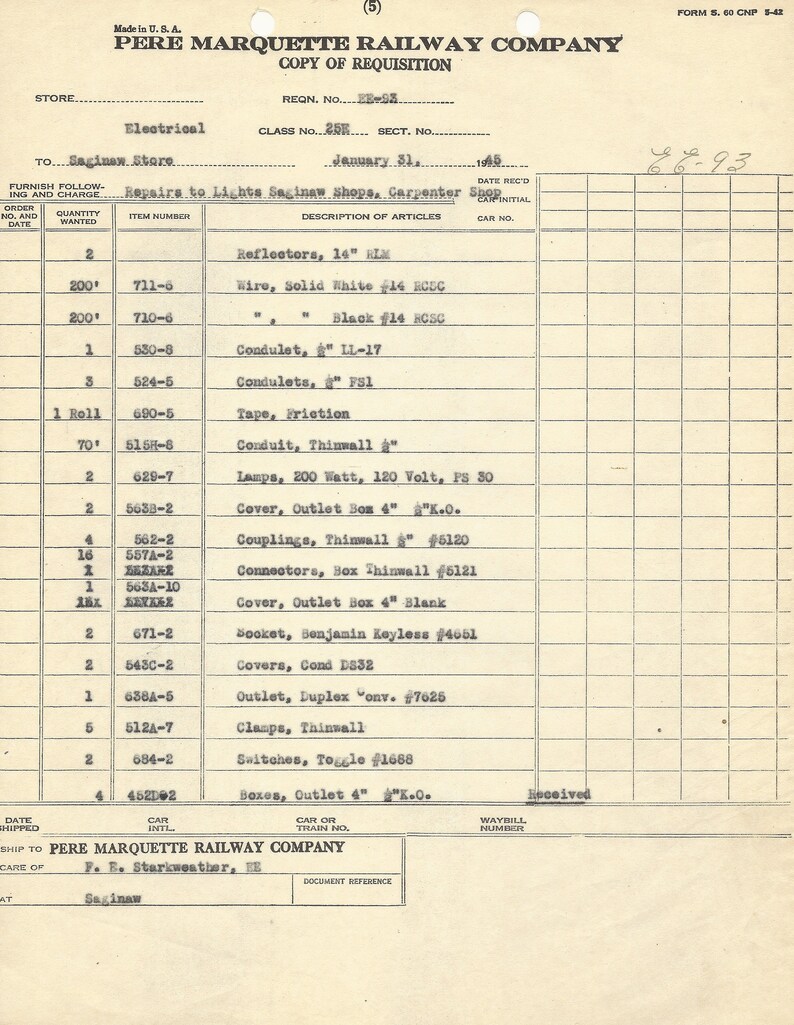 (5)
FORM S. 60 CNP 5-42
Made in U. S. A.
PERE MARQUETTE RAILWAY COMPANY
COPY OF REQUISITION
STORE REQN. No. EE-93
Electrical CLASS No. 25E SECT. No.
TO Saginaw Store January 31, 1945 EE-93
FURNISH FOLLOW- DATE REC'D
ING AND CHARGE Repairs to Lights Saginaw Shops, Carpenter Shop CAR INITIAL
ORDER NO. AND DATE QUANTITY WANTED ITEM NUMBER DESCRIPTION OF ARTICLES CAR NO.
2 Reflectors, 14" RLM
200' 711-6 Wire, Solid White #14 RCSC
200' 710-6 " , " Black #14 RCSC
1 530-8 Condulet, ½" LL-17
3 524-5 Condulets, ½" FS1
1 Roll 690-5 Tape, Friction
70' 515H-8 Conduit, Thinwall ½"
2 629-7 Lamps, 200 Watt, 120 Volt, PS 30
2 563B-2 Cover, Outlet Box 4" ½"K.O.
4 562-2 Couplings, Thinwall ½" #5120
16 557A-2
Connectors, Box Thinwall #5121
1 563A-10
Cover, Outlet Box 4" Blank
2 671-2 Socket, Benjamin Keyless #4651
2 543C-2 Covers, Cond DS32
1 638A-5 Outlet, Duplex Conv. #7625
5 512A-7 Clamps, Thinwall
2 684-2 Switches, Toggle #1688
4 452D-2 Boxes, Outlet 4" ½"K.O. Received
DATE SHIPPED CAR INTL. CAR OR TRAIN NO. WAYBILL NUMBER
SHIP TO PERE MARQUETTE RAILWAY COMPANY
CARE OF F. E. Starkweather, EE
DOCUMENT REFERENCE
AT Saginaw